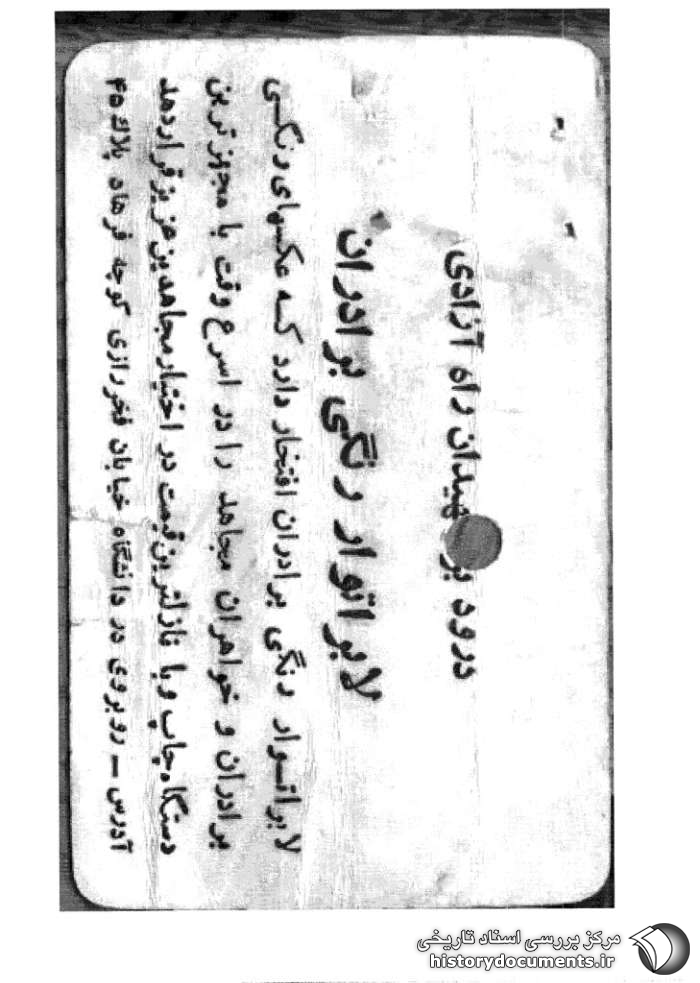 درود بر شهیدان راه آزادی
لابراتوار رنگی برادران
لابراتوار رنگی برادران افتخار دارد که عکسهای رنگی
برادران و خواهران مجاهد را در اسرع وقت با مجهزترین
دستگاه چاپ و با نازلترین قیمت در اختیار مجاهدین عزیز قرار دهد
آدرس ــ روبروی در دانشگاه خیابان فخررازی کوچه فرهاد پلاک ۴۵
مرکز بررسی اسناد تاریخی
historydocuments.ir